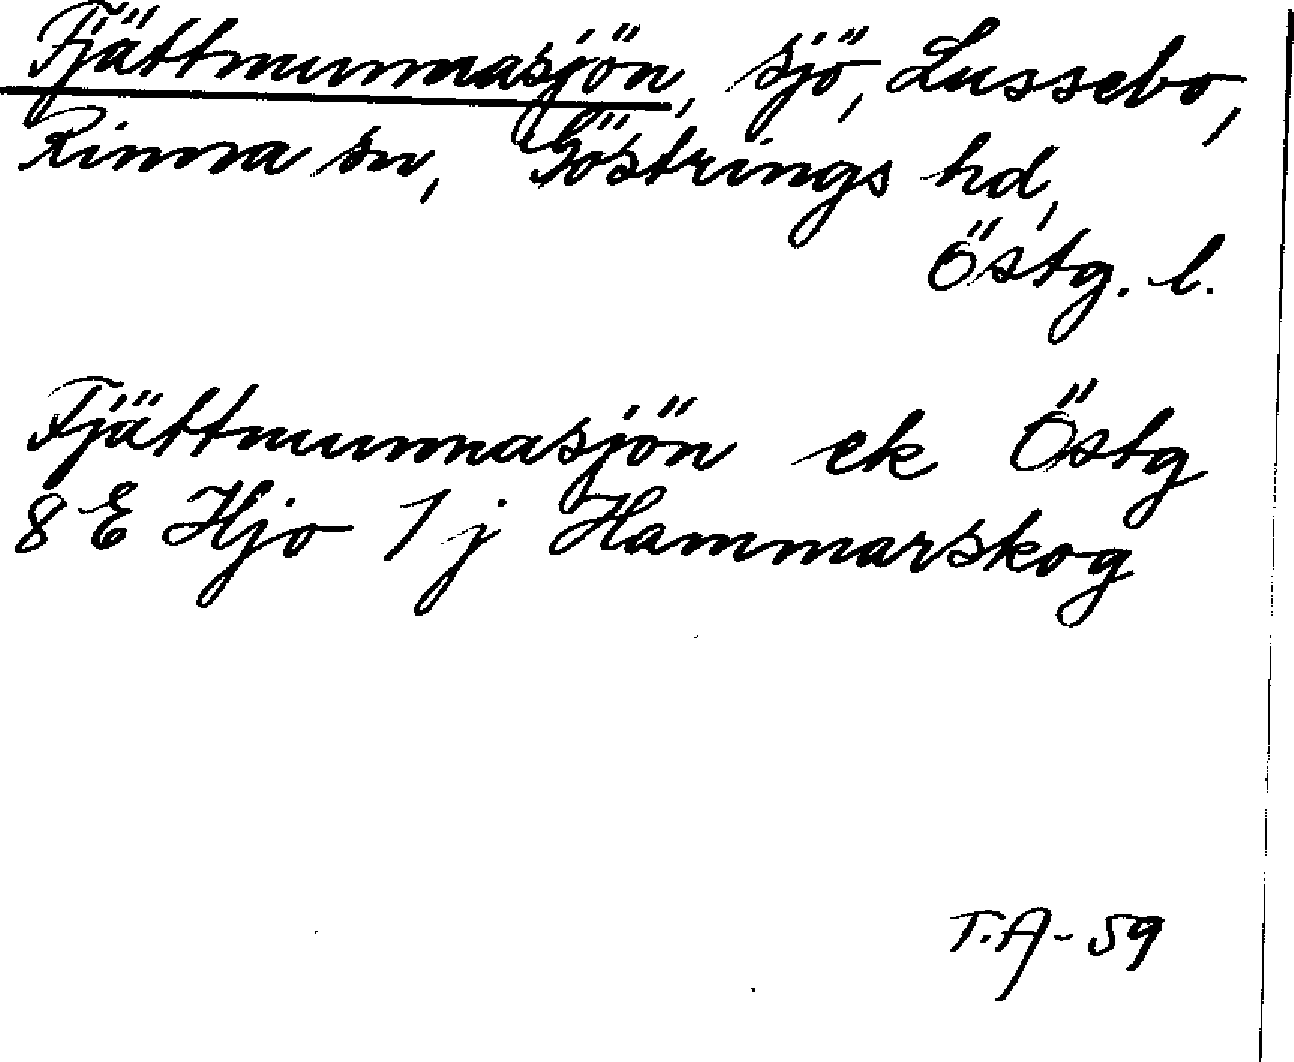 Fjättmunnasjön, sjö, Lussebo,
Rinna sn, Göstrings hd,
Östg. l.
Fjättmunnasjön ek Östg
8 E Hjo 1 j Hammarskog
T.A-59